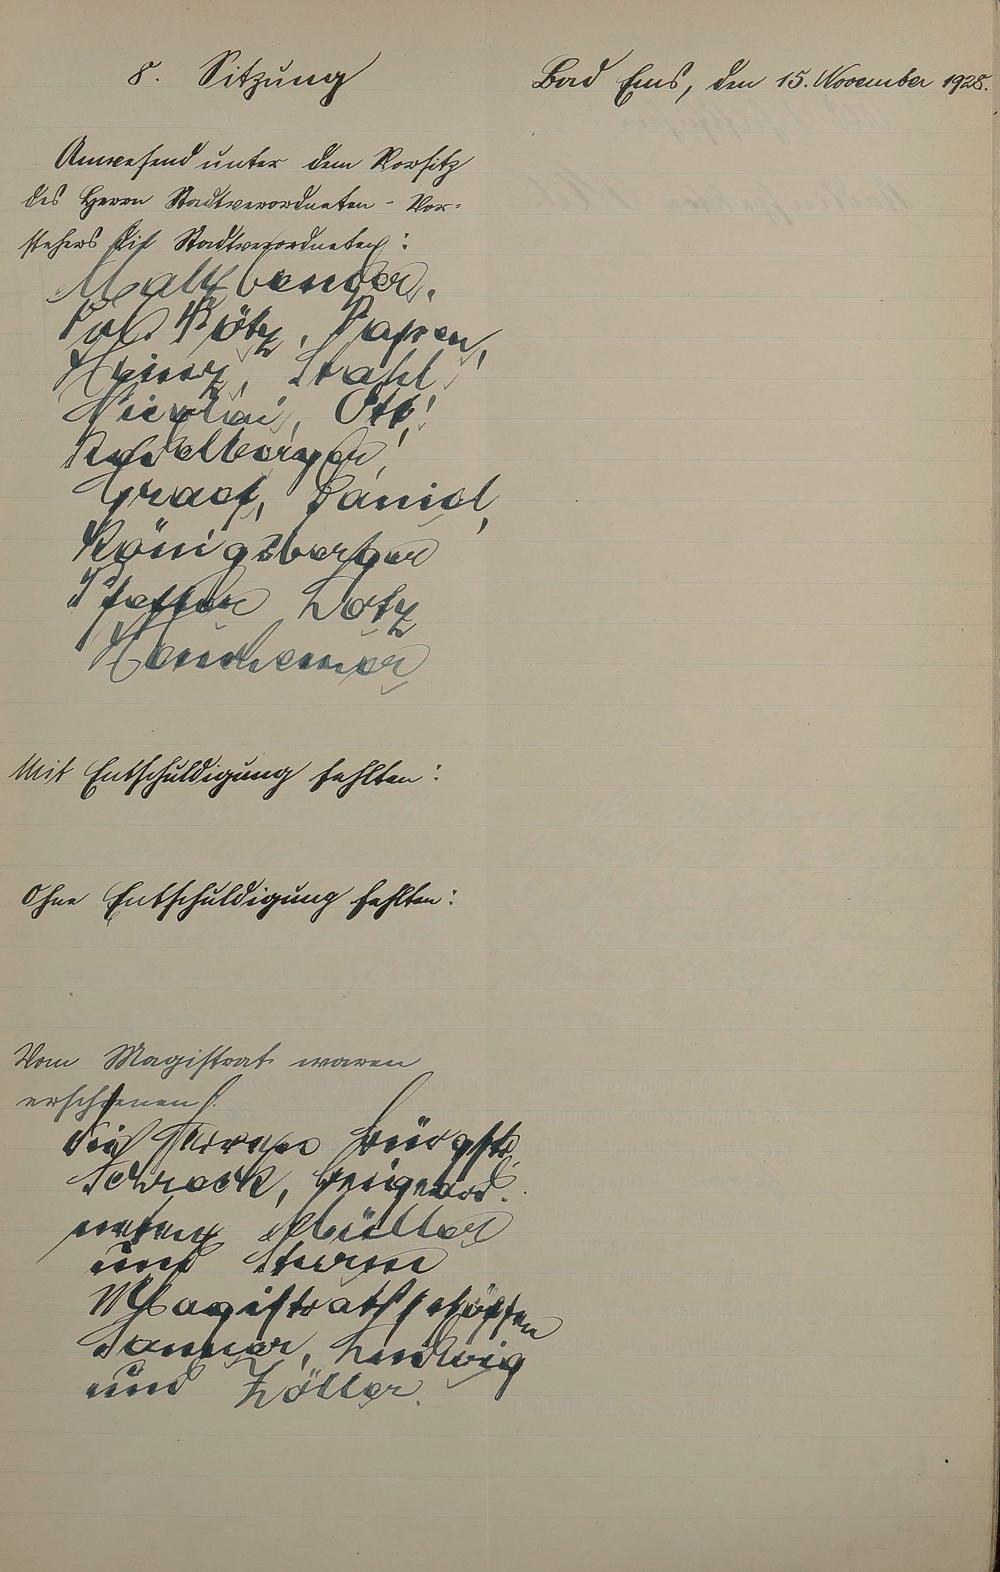 8. Sitzung
Bad Ems, den 15. November 1928.
Anwesend unter dem Vorsitz
des Herrn Stadtverordneten-Vor-
stehers die Stadtverordneten:
Kötz, Papen,
Heinz, Strahl,
Nicolai, Ott,
Graef, Daniel,
Königsberger
Lotz
Mit Entschuldigung fehlten:
Ohne Entschuldigung fehlten:
Vom Magistrat waren
erschienen:
die Herren Bürgstr.
Schreck, Beigeord-
neten Müller
und Sturm
Magistratsschöffen
Sanner, Ludwig
und Zöller.